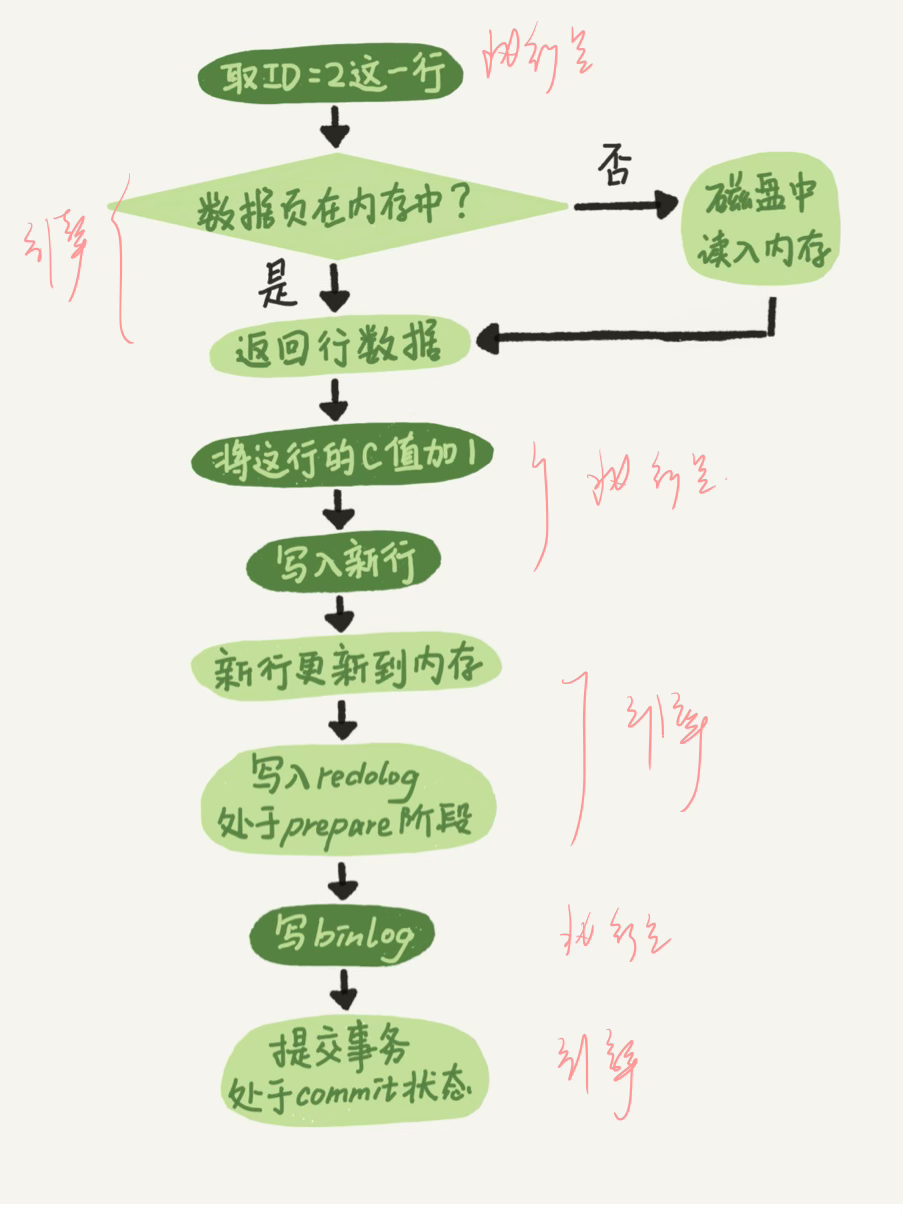 取ID=2这一行
执行器
数据页在内存中？
否
磁盘中
读入内存
引擎
是
返回行数据
将这行的C值加1
执行器
写入新行
新行更新到内存
引擎
写入redolog
处于prepare阶段
写binlog
执行器
提交事务
处于commit状态
引擎